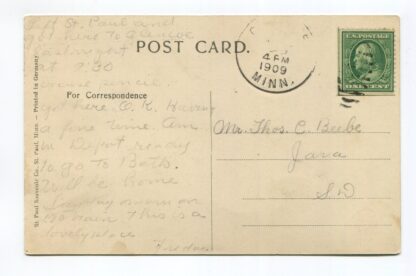 Left St. Paul and
got here to Glencoe
last night
at 9:30
got here O.K. Having
a fine time. Am
in Depot ready
to go to Bath.
Will be home
on
no rain. This is a
lovely place
POST CARD.
For Correspondence
St. Paul Souvenir Co., St. Paul, Minn. – Printed in Germany.
4 PM
1909
MINN.
U.S. POSTAGE
ONE CENT
Mr. Thos. C. Beebe
Java
S.D